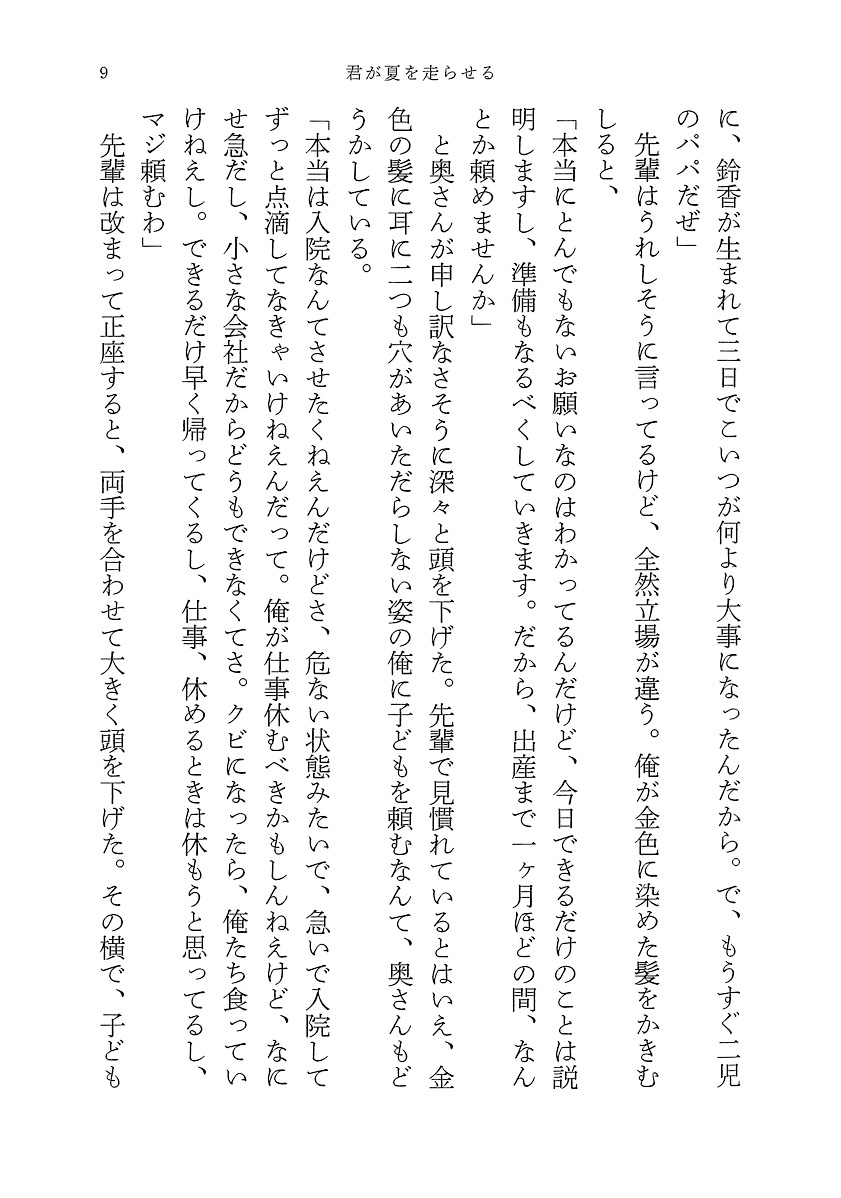 9
君が夏を走らせる
に、鈴香が生まれて三日でこいつが何より大事になったんだから。で、もうすぐ二児
のパパだぜ」
　先輩はうれしそうに言ってるけど、全然立場が違う。俺が金色に染めた髪をかきむ
しると、
「本当にとんでもないお願いなのはわかってるんだけど、今日できるだけのことは説
明しますし、準備もなるべくしていきます。だから、出産まで一ヶ月ほどの間、なん
とか頼めませんか」
　と奥さんが申し訳なさそうに深々と頭を下げた。先輩で見慣れているとはいえ、金
色の髪に耳に二つも穴があいただらしない姿の俺に子どもを頼むなんて、奥さんもど
うかしている。
「本当は入院なんてさせたくねえんだけどさ、危ない状態みたいで、急いで入院して
ずっと点滴してなきゃいけねえんだって。俺が仕事休むべきかもしんねえけど、なに
せ急だし、小さな会社だからどうもできなくてさ。クビになったら、俺たち食ってい
けねえし。できるだけ早く帰ってくるし、仕事、休めるときは休もうと思ってるし、
マジ頼むわ」
　先輩は改まって正座すると、両手を合わせて大きく頭を下げた。その横で、子ども